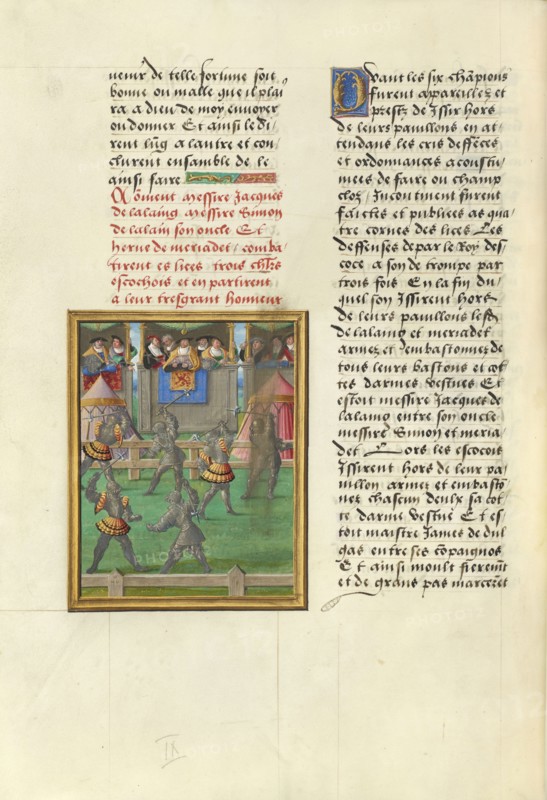 venir de telle fortune soit
bonne ou malle que il plai
ra a dieu de moy envoyer
ou donner Et ainsi le di
rent lung a lautre et con
clurent ensamble de le
ainsi faire
Coment messire Jacques
de lalaing messire Simon
de lalain son oncle Et
herue de meriadet comba
tirent es lices trois chlrs
escochois et en partirent
a leur tresgrant honneur
Dvant les six chāpions
furent appareillez et
prestz de issir hors
de leurs pavillons en at
tendans les cris deffēces
et ordonnances acoustu
mees de faire ou champ
cloz Incontinent furent
faictes et publiees as qua
tre cornes des lices Les
deffenses de par le Roy des
coce a son de trompe par
trois fois En la fin du
quel son Issirent hors
de leurs pavillons les
de lalaing et meriadet
armez et Embastonnez de
tous leurs bastons et cot
tes darmes vestues Et
estoit messire Jacques de
lalaing entre son oncle
messire Simon et meria
det Lors les escocois
Issirent hors de leur pa
villon armez et embasto
nez chascun deulx sa cot
te darme vestue Et es
toit maistre James de dul
gas entre ses cōpaignos
Et ainsi moult fieremt
et de grans pas marcerēt
IX